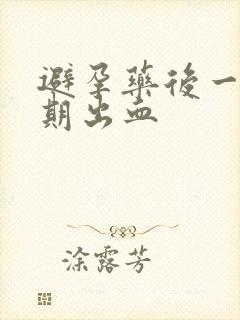 避孕藥後一
期出血
涂露芳